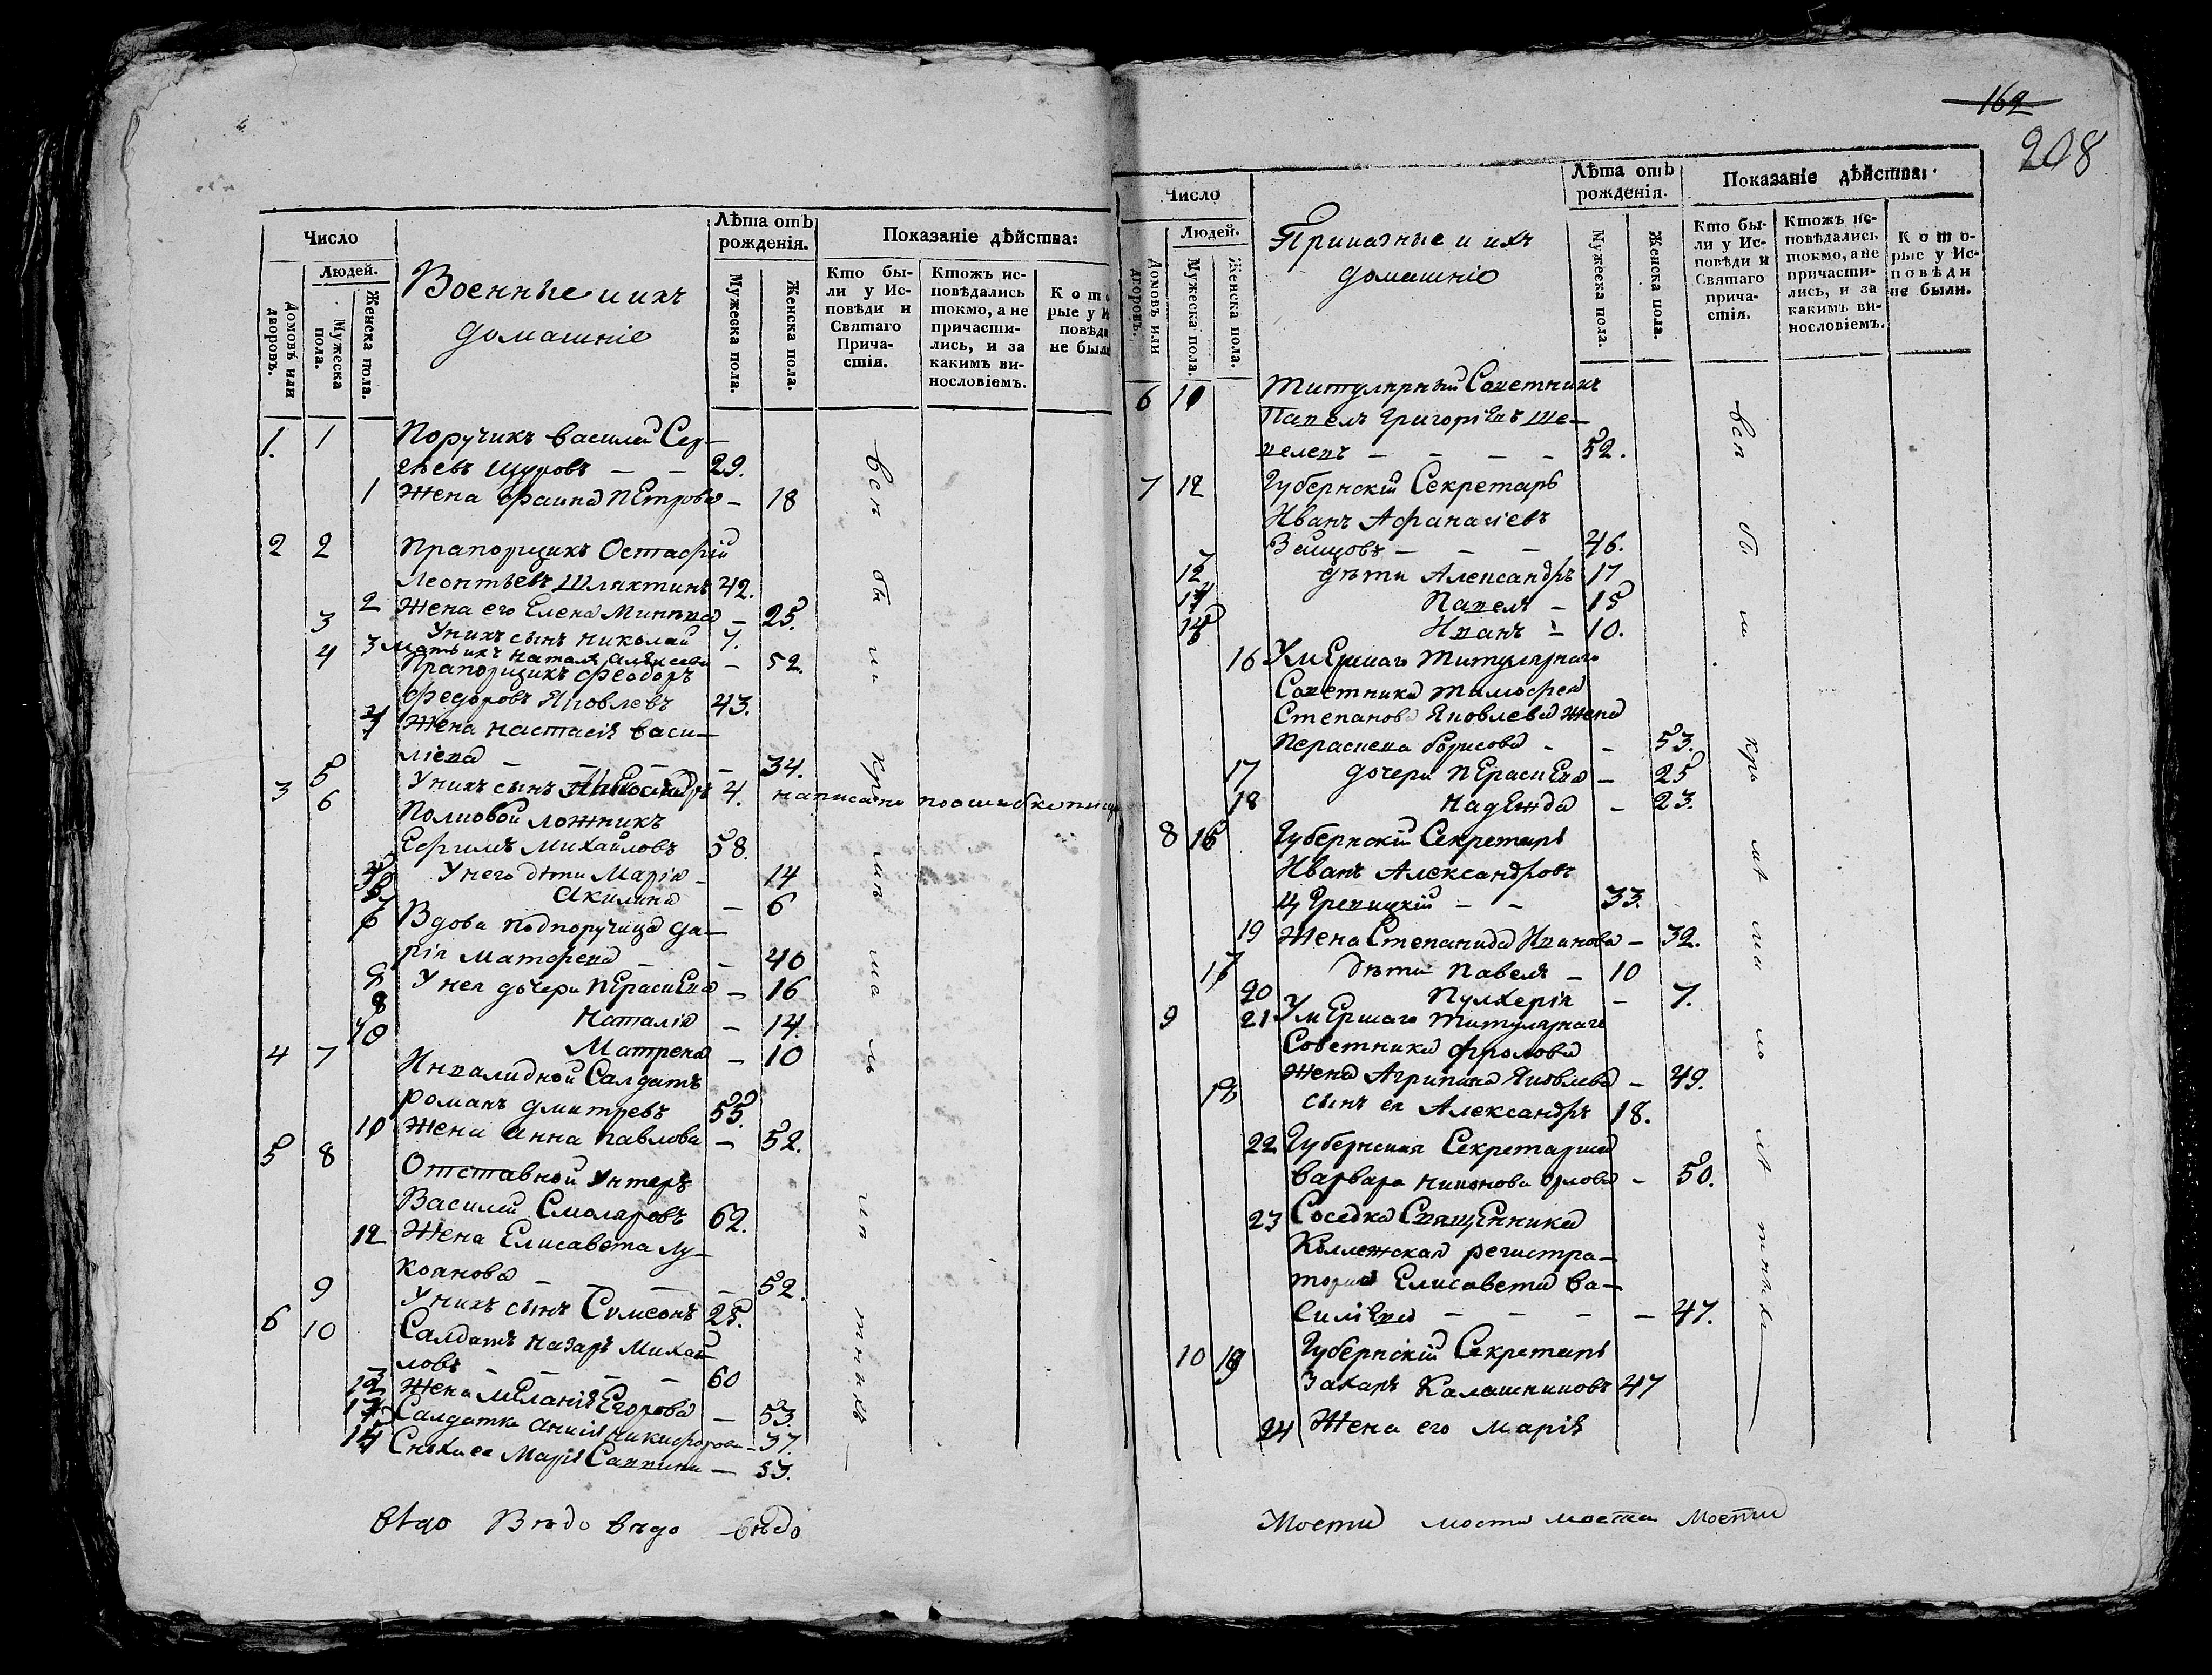 162
208
Число
Людей.
Домовъ или дворовъ.
Мужеска пола.
Женска пола.
Военные и ихъ
домашніе
Лѣта отъ
рожденія.
Мужеска пола.
Женска пола.
Показаніе дѣйства:
Кто бы-
ли у Ис-
повѣди и
Святаго
Прича-
стія.
Ктожъ ис-
повѣдались
токмо, а не
причасти-
лись, и за
какимъ ви-
нословіемъ.
К о т о
рые у И
повѣд
не был
1. 1 Поручикъ Василей Сер-
гѣевъ Щуровъ — — 29.
1 Жена Фаина Петрова — 18
2 2 Прапорщикъ Остафій
Леонтьевъ Шляхтинъ 42.
2 Жена его Елена Минѣва — 25.
3 У нихъ сынъ Николай 7.
3 Мать ихъ Наталя Алѣксеева — 52.
4 Прапорщикъ Феодоръ
Федоровъ Яковлевъ 43.
4 Жена Настасія Васи-
ліева — — — — 34.
5 У нихъ сынъ 4. написано поошибке
3 6 Полковой ложникъ
Ефимъ Михайловъ 58.
У него дѣти Марія — 14
Акилина — 6
6 Вдова подпоручица Да-
рія Матфева — — 40
У нея дочери Праскева — 16
8 Наталія — 14.
Матрена — 10
4 7 Инвалидной Салдатъ
Романъ Дмитревъ 55.
10 Жена Анна Павлова — 52.
5 8 Отставной Унтеръ
Василий Смоляровъ 62.
12 Жена Елисавета Лу-
коянова — — — 52.
9 У нихъ сынъ Сумеонъ 25.
6 10 Салдатъ Назаръ Михай-
ловъ — — — — 60
Жена Меланія Егорова — 53.
Салдатка Анисія Никифорова — 37.
14 Сноха ее Марія Саввина — 33.
всѣ бы ли кро мѣ ма ло лѣ тнихъ —
вѣдо Вѣдо вѣдо вѣдо
Число
Людей.
Домовъ или дворовъ.
Мужеска пола.
Женска пола.
Приказные и ихъ
домашніе
Лѣта отъ
рожденія.
Мужеска пола.
Женска пола.
Показаніе дѣйства:
Кто бы-
ли у Ис-
повѣди и
Святаго
прича-
стія.
Ктожъ ис-
повѣдались
токмо, а не
причасти-
лись, и за
какимъ ви-
нословіемъ.
К о т о-
рые у Ис-
п о в ѣ д и
не были.
6 Титулярный Советникъ
Павелъ Григоріевъ Ше-
велевъ — — — — 52.
7 12 Губернскій Секретарь
Иванъ Афанасіевъ
— — — 46.
дѣти Александръ 17
Павелъ — 15
Иванъ — 10.
16 Умершаго Титулярнаго
Советника Тимофея
Степанова Яковлева жена
Праскева Борисова — — 53.
17 дочери Праскева — 25
18 Надежда — 23.
8 16 Губернскій Секретарь
Иванъ Александровъ
— — 33.
19 Жена Степанида Иванова — 32.
дѣти Павелъ — 10
20 Пулхерія — 7.
9 21 Умершаго Титулярнаго
Советника Фролова
Жена Агрипина Яковлева — 49.
сынъ ея Александръ 18.
22 Губернская Секретарша
Варвара Никонова Орлова — 50.
23 Соседка Священника
Коллежская регистра-
торша Елисавета Ва-
силіева — — — — 47.
10 19 Губернскій Секретарь
Захаръ Калашниковъ 47
24 Жена его Марія
всѣ бы ли кро мѣ ма ло лѣ тнихъ —
Мости мости мости Мости